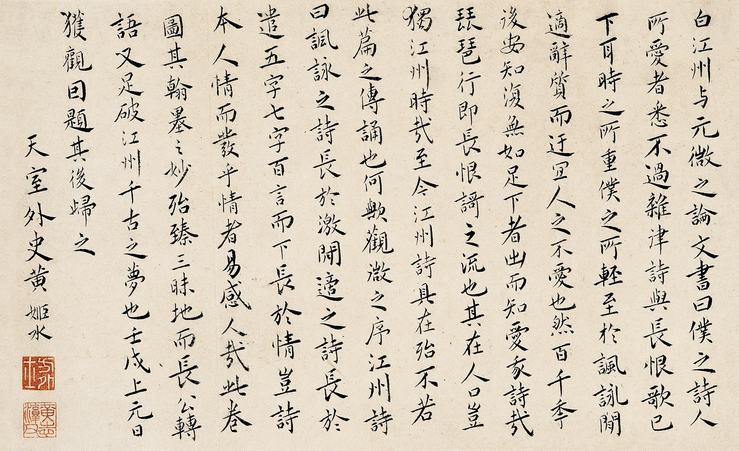 白江州与元微之論文書曰僕之詩人
所愛者悉不過雜律詩與長恨歌已
下耳時之所重僕之所輕至於諷詠閒
適辭質而迂冝人之不愛也然百千季
後安知復無如足下者出而知愛我詩哉
琵琶行即長恨謌之流也其在人口豈
獨江州時哉至今江州詩具在殆不若
此篇之傳誦也何歟觀微之序江州詩
曰諷詠之詩長於激閒適之詩長於
遣五字七字百言而下長於情豈詩
本人情而發乎情者易感人哉此卷
圖其翰墨之妙殆臻三昧地而長公轉
語又足破江州千古之夢也壬戌上元日
獲觀因題其後歸之
天室外史黃姬水